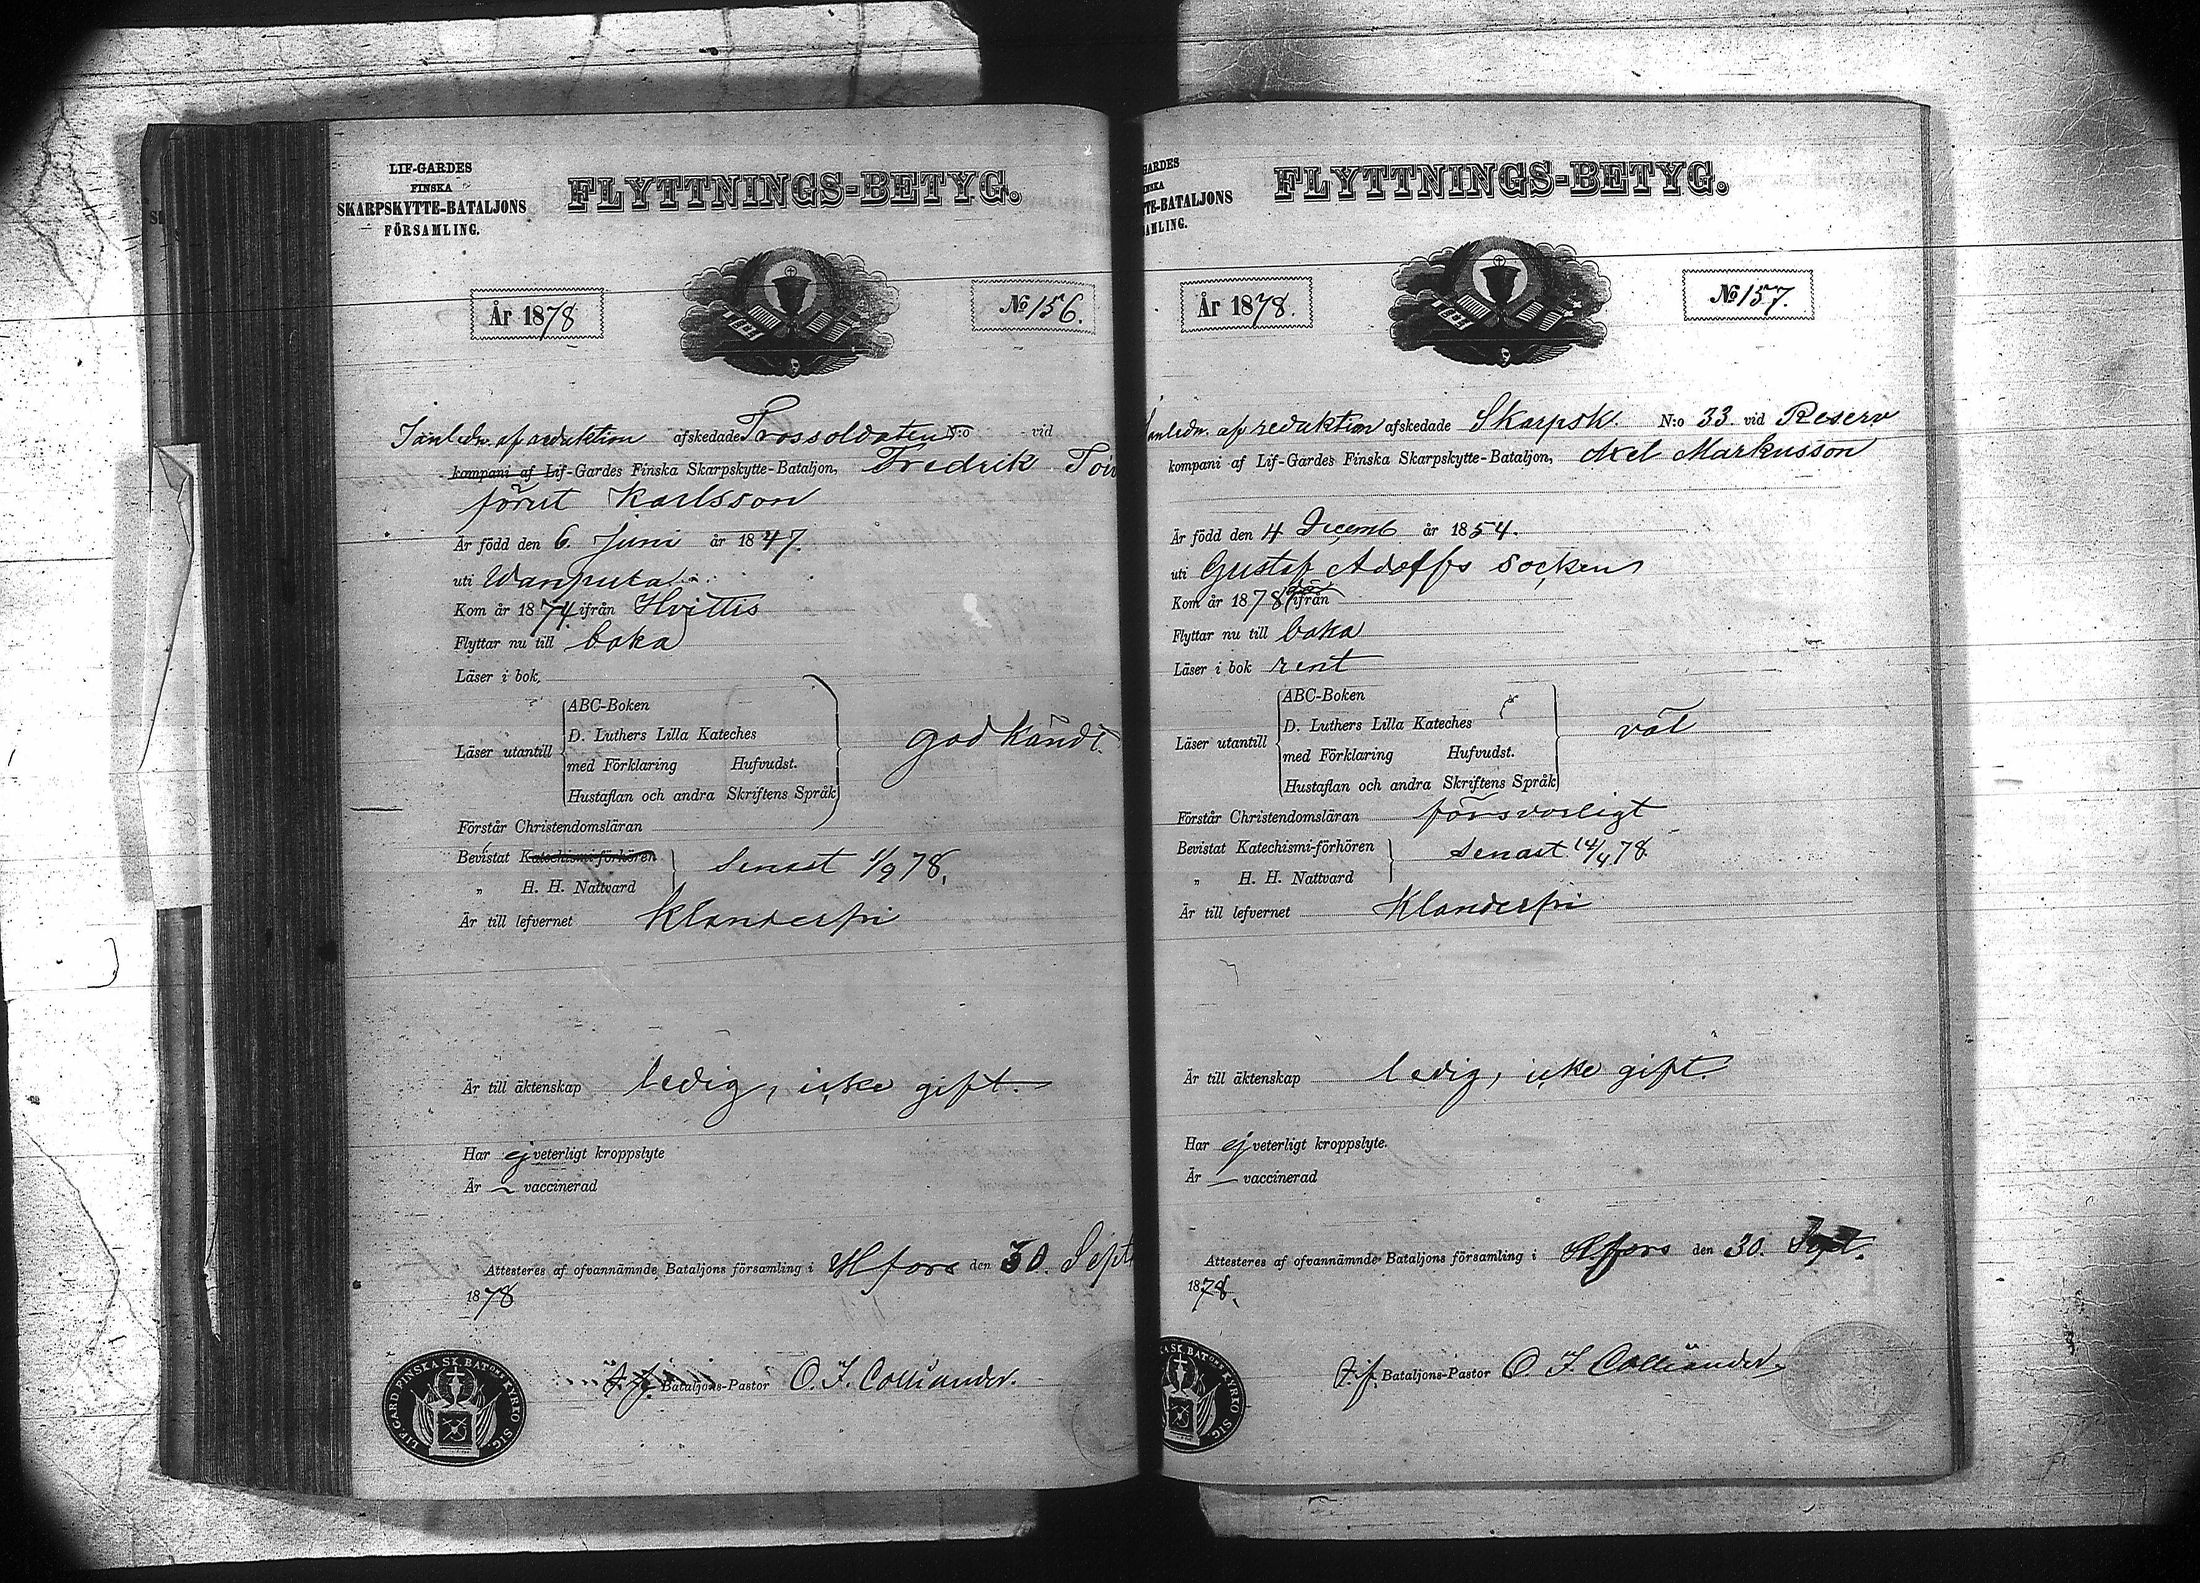 LIF-GARDES
FINSKA
SKARPSKYTTE-BATALJONS
FÖRSAMLING.
FLYTTNINGS-BETYG.
År 1878
No 156.
I anledn. af reduktion afskedade Trossoldaten N:o vid
kompani af Lif-Gardes Finska Skarpskytte-Bataljon, Fredrik
förut Karlsson
Är född den 6. Juni år 1847.
uti Wampula
Kom år 1874 ifrån Hvittis
Flyttar nu till boka
Läser i bok
Läser utantill
ABC-Boken
D. Luthers Lilla Kateches
med Förklaring Hufvudst.
Hustaflan och andra Skriftens Språk
godkändt
Förstår Christendomsläran
Bevistat Katechismi-förhören
„ H. H. Nattvard
senast 1/9 78.
Är till lefvernet Klanderfri
Är till äktenskap ledig, icke gift.
Har ej veterligt kroppslyte
Är vaccinerad
Attesteres af ofvannämnde Bataljons församling i H.fors den 30. Sept
1878
t.f. Bataljons-Pastor O. I. Colliander.
LIF-GARD FINSKA SK. BATons KYRKO SIG.
GARDES
NSKA
TE-BATALJONS
AMLING.
FLYTTNINGS-BETYG.
År 1878.
No 157.
anledn. af reduktion afskedade Skarpsk. N:o 33 vid Reserv
kompani af Lif-Gardes Finska Skarpskytte-Bataljon, Axel Markusson
Är född den 4 Decemb år 1854.
uti Gustaf Adolfs socken
Kom år 1878 ifrån
Flyttar nu till boka
Läser i bok rent
Läser utantill
ABC-Boken
D. Luthers Lilla Kateches
med Förklaring Hufvudst.
Hustaflan och andra Skriftens Språk
väl
Förstår Christendomsläran försvarligt
Bevistat Katechismi-förhören
„ H. H. Nattvard
senast 14/4 78.
Är till lefvernet Klanderfri
Är till äktenskap ledig, icke gift.
Har ej veterligt kroppslyte.
Är vaccinerad
Attesteres af ofvannämnde Bataljons församling i H.fors den 30. Sept.
1878.
t.f. Bataljons-Pastor O. I. Colliander.
KA SK. BATons KYRKO SIG.